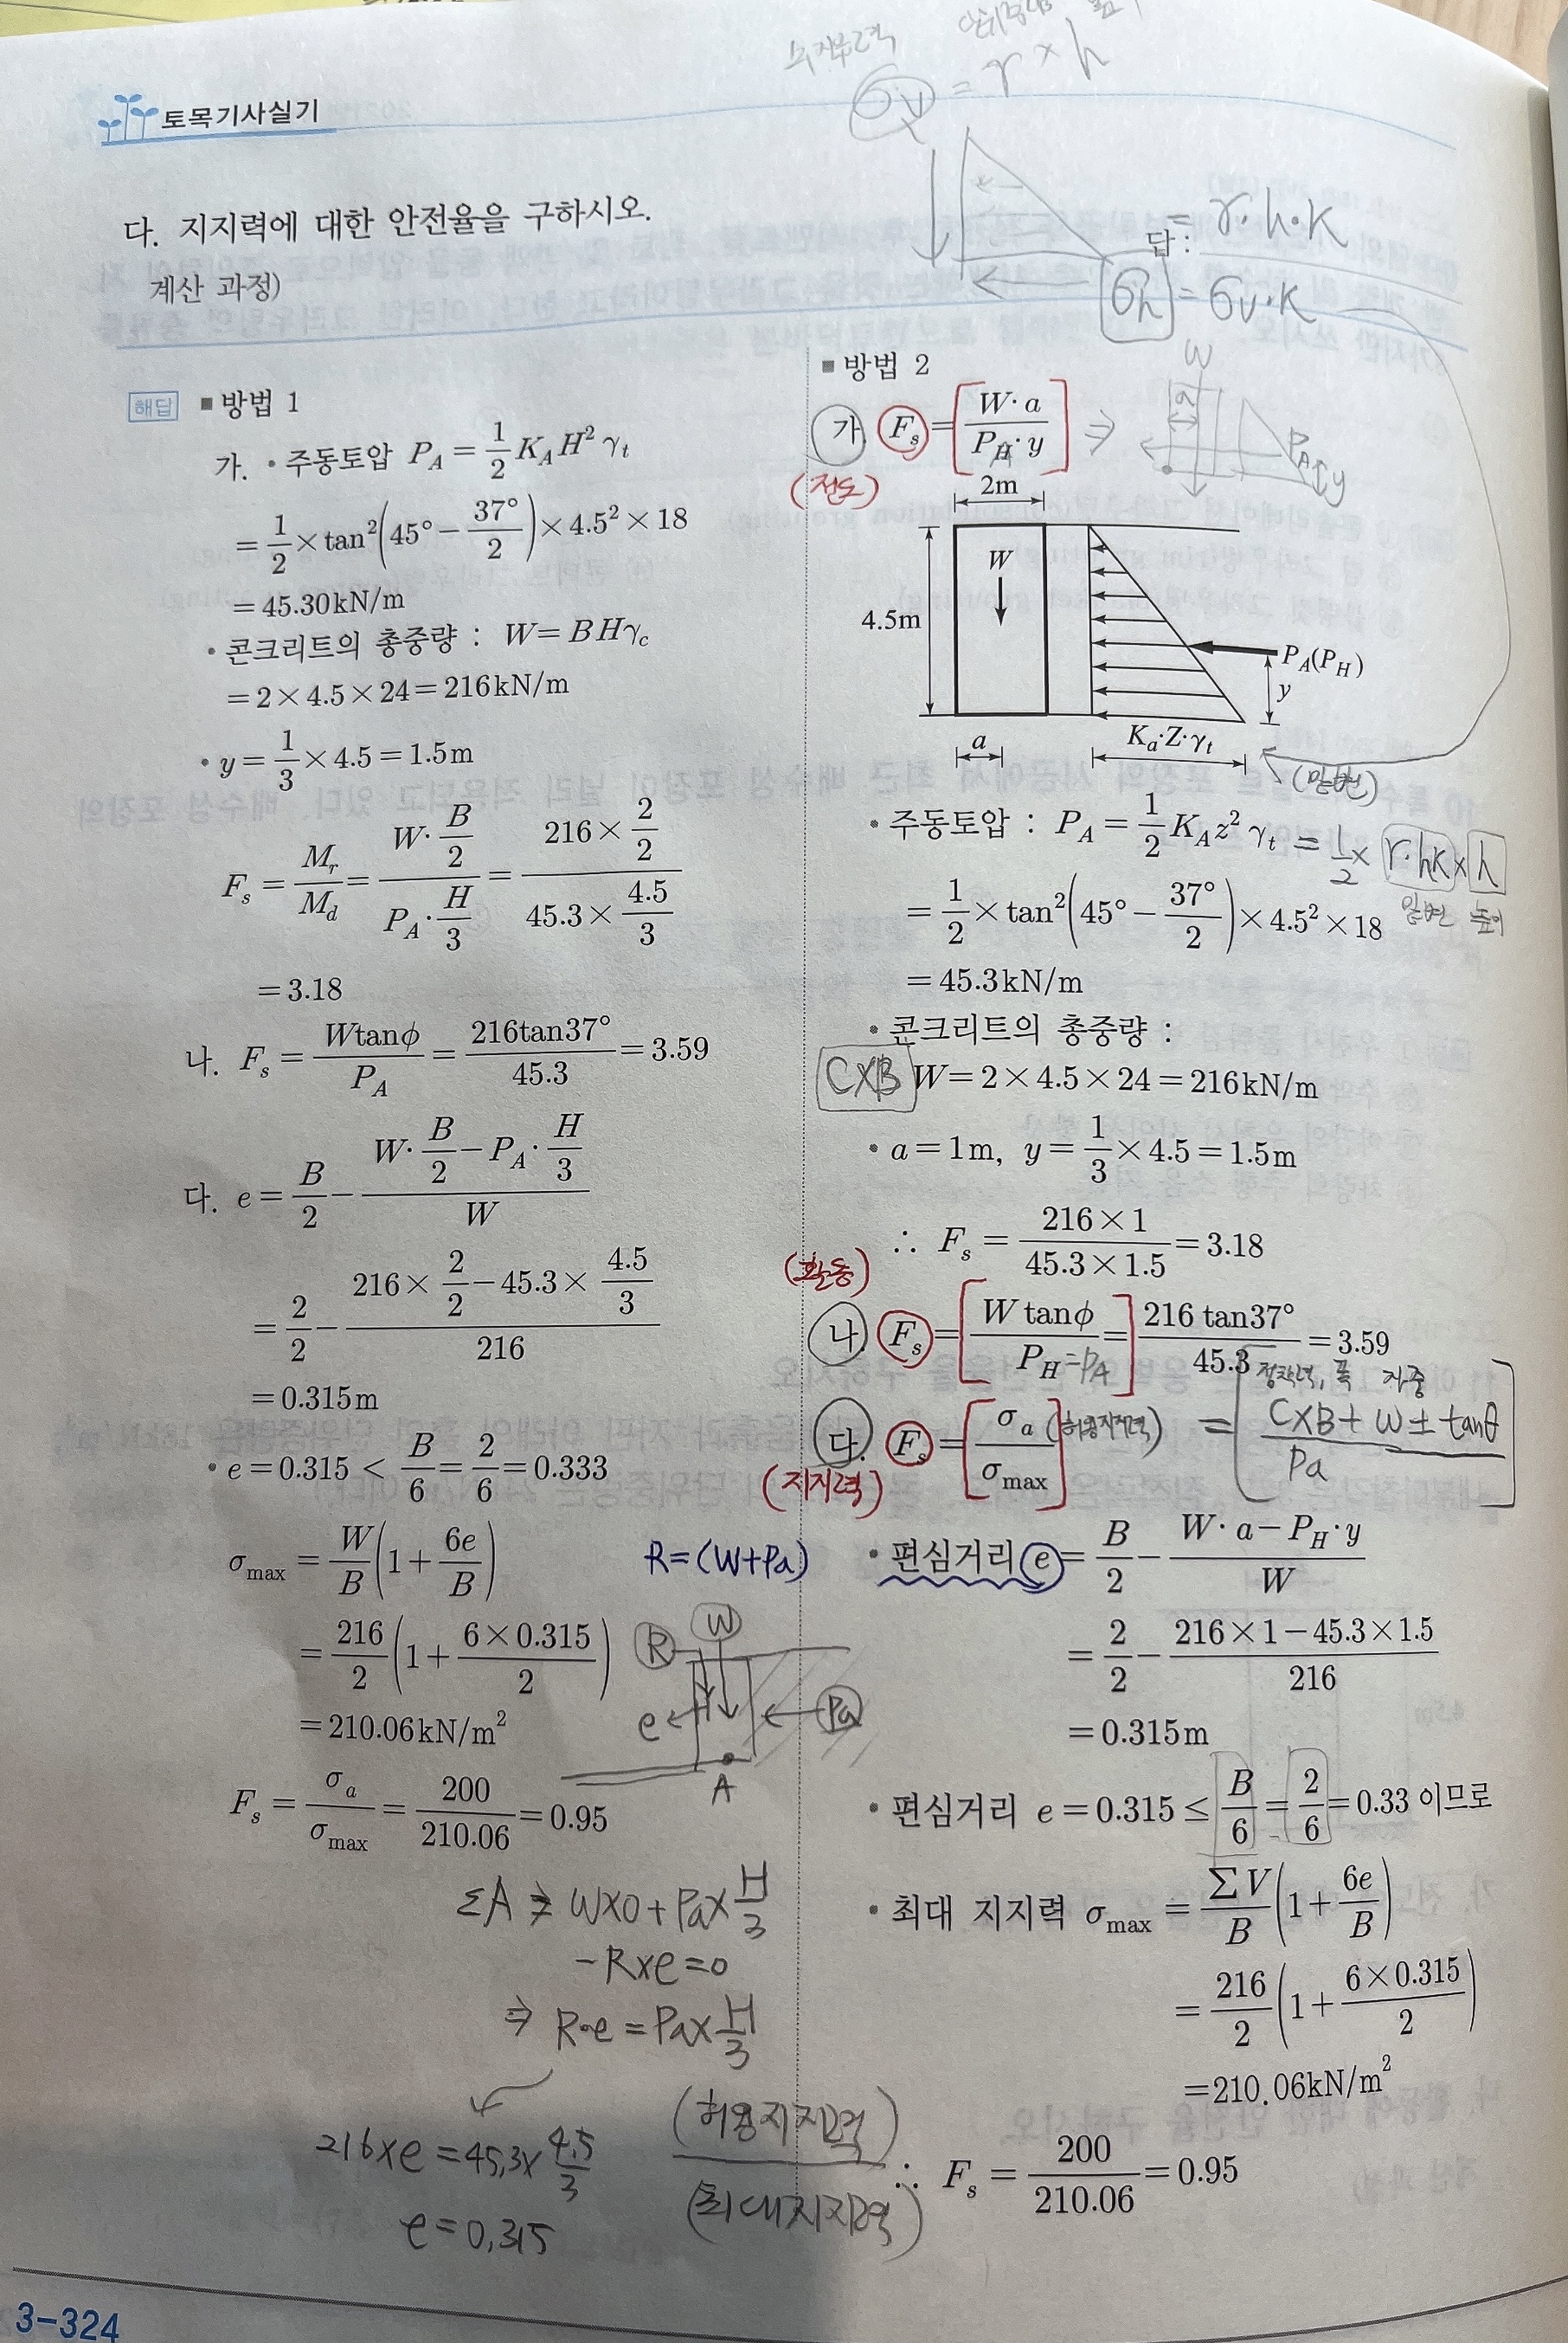 수직분력 단위중량
σv = r × h
토목기사실기
다. 지지력에 대한 안전율을 구하시오.
계산 과정)
답 :
= r·h·K
σh = σv·K
해답
■ 방법 1
가. • 주동토압 P_A = 1/2 K_A H² γ_t
= 1/2 × tan²(45° − 37°/2) × 4.5² × 18
= 45.30kN/m
• 콘크리트의 총중량 : W = BHγ_c
= 2 × 4.5 × 24 = 216kN/m
• y = 1/3 × 4.5 = 1.5m
F_s = M_r/M_d = (W· B/2)/(P_A· H/3) = (216 × 2/2)/(45.3 × 4.5/3)
= 3.18
나. F_s = Wtanφ/P_A = 216tan37°/45.3 = 3.59
다. e = B/2 − (W· B/2 − P_A· H/3)/W
= 2/2 − (216 × 2/2 − 45.3 × 4.5/3)/216
= 0.315m
• e = 0.315 < B/6 = 2/6 = 0.333
σ_max = W/B (1 + 6e/B)
= 216/2 (1 + 6 × 0.315/2)
= 210.06kN/m²
F_s = σ_a/σ_max = 200/210.06 = 0.95
R=(W+Pa)
R
W
e
Pa
A
ΣA ⇒ W×0 + Pa× H/3
−R×e=0
⇒ R·e = Pa× H/3
216×e = 45.3× 4.5/3
e = 0.315
(허용지지력)
(최대지지력)
■ 방법 2
가. F_s = W·a/P_H·y ⇒
A
(전도)
W
a
P_A
y
2m
W
4.5m
P_A(P_H)
y
a
K_a·Z·γ_t
(밑변)
• 주동토압 : P_A = 1/2 K_A z² γ_t = 1/2 × r·hK × h
밑변 높이
= 1/2 × tan²(45° − 37°/2) × 4.5² × 18
= 45.3kN/m
• 콘크리트의 총중량 :
C×B
W = 2 × 4.5 × 24 = 216kN/m
• a = 1m, y = 1/3 × 4.5 = 1.5m
∴ F_s = 216 × 1/45.3 × 1.5 = 3.18
(활동)
나. F_s = W tanφ/P_H = 216 tan37°/45.3 = 3.59
=PA
다. F_s = σ_a/σ_max (허용지지력)
(지지력)
점착력, 폭 자중
= C×B + W ± tanθ/Pa
• 편심거리 e = B/2 − (W·a − P_H·y)/W
= 2/2 − (216 × 1 − 45.3 × 1.5)/216
= 0.315m
• 편심거리 e = 0.315 ≤ B/6 = 2/6 = 0.33 이므로
• 최대 지지력 σ_max = ΣV/B (1 + 6e/B)
= 216/2 (1 + 6 × 0.315/2)
= 210.06kN/m²
∴ F_s = 200/210.06 = 0.95
3-324